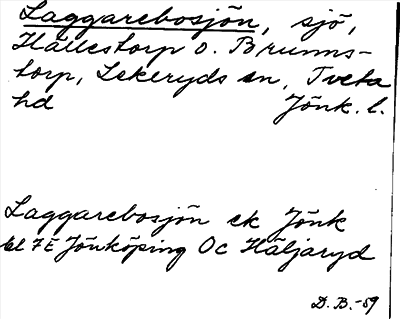 Laggarebosjön, sjö,
Hällestorp o. Brunns-
torp, Lekeryds sn, Tveta
hd Jönk. l.
Laggarebosjön ek Jönk
bl 7E Jönköping Oc Häljaryd
D. B. -59